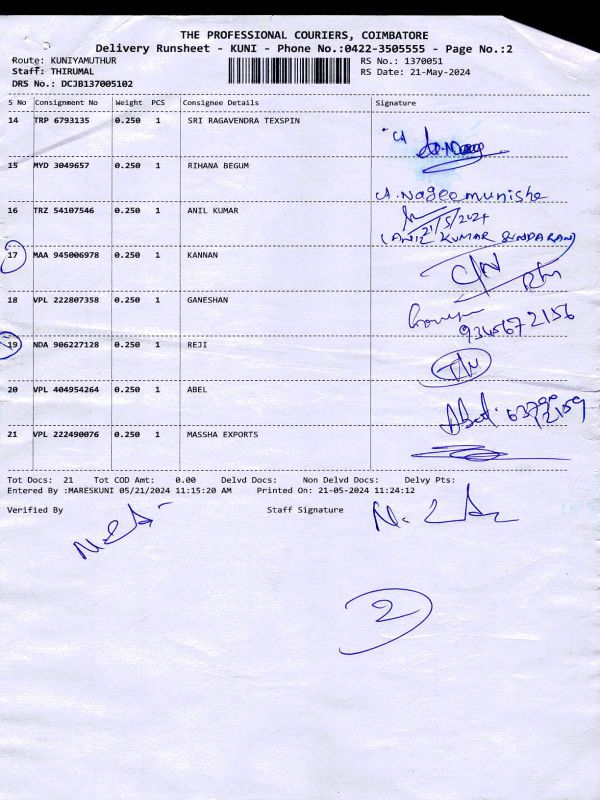 THE PROFESSIONAL COURIERS, COIMBATORE
Delivery Runsheet - KUNI - Phone No.:0422-3505555 - Page No.:2
Route: KUNIYAMUTHUR RS No.: 1370051
Staff: THIRUMAL RS Date: 21-May-2024
DRS No.: DCJB137005102
S No Consignment No Weight PCS Consignee Details Signature
14 TRP 6793135 0.250 1 SRI RAGAVENDRA TEXSPIN
15 MYD 3049657 0.250 1 RIHANA BEGUM
16 TRZ 54107546 0.250 1 ANIL KUMAR
21/5/2024
(ANIL KUMAR SUNDARAN)
17 MAA 945006978 0.250 1 KANNAN
C/N
18 VPL 222807358 0.250 1 GANESHAN
9345672156
19 NDA 906227128 0.250 1 REJI
20 VPL 404954264 0.250 1 ABEL
Abel.
21 VPL 222490076 0.250 1 MASSHA EXPORTS
Tot Docs: 21 Tot COD Amt: 0.00 Delvd Docs: Non Delvd Docs: Delvy Pts:
Entered By :MARESKUNI 05/21/2024 11:15:20 AM Printed On: 21-05-2024 11:24:12
Verified By Staff Signature
2